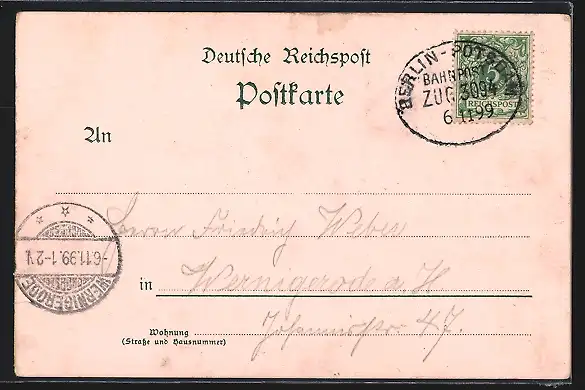 Deutsche Reichspost
Postkarte
BERLIN-POTSDAM
BAHNPOST
ZUG 3094
6.11.99
5
REICHSPOST
An
Herrn Friedrich Weber
WERNIGERODE
-6.11.99.1-2N.
in Wernigerode a. H
Wohnung
(Straße und Hausnummer)
47.